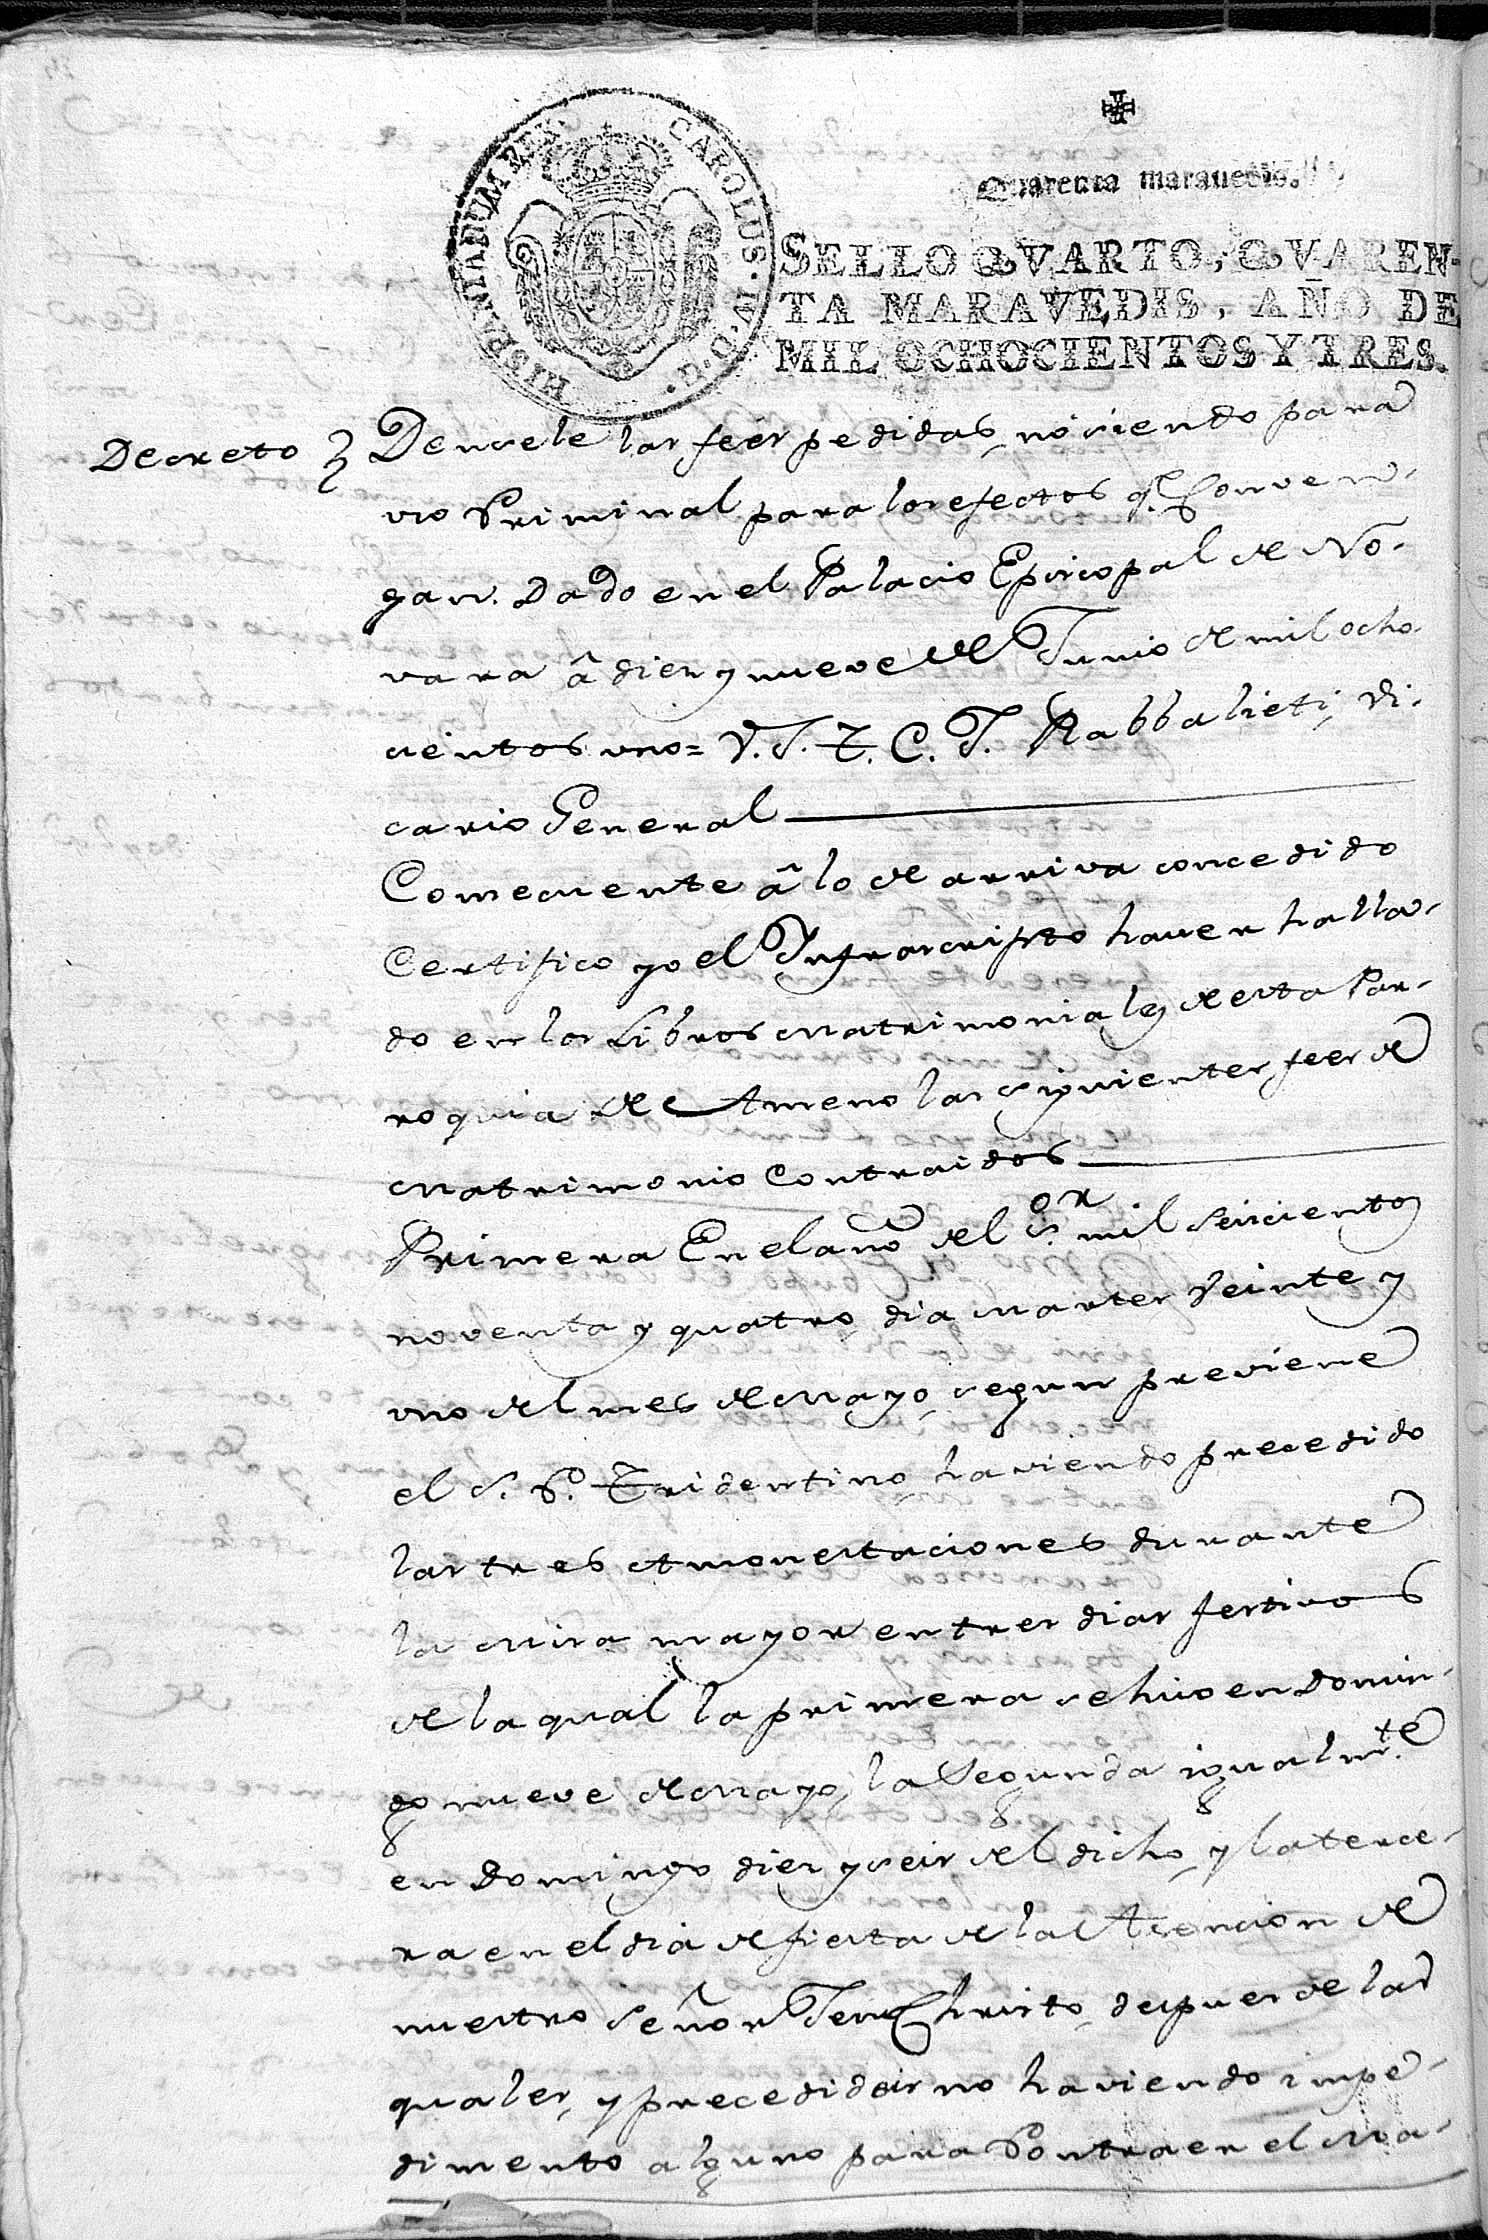 Quarenta maravedis.
CAROLUS·IV·D·G·HISPANIARUM REX·
SELLO QVARTO, QVAREN-
TA MARAVEDIS, AÑO DE
MIL OCHOCIENTOS Y TRES.
Decreto
Densele las feés pedidas, no siendo para
uso Criminal para los efectos q.e Conven-
gan. Dado en el Palacio Episcopal de No-
vara â diez y nueve de Junio de mil ocho-
cientos uno= V. J. T. C. J. Rabbalieti, Vi-
cario General
Consecuente â lo de arriva concedido
Certifico yo el Infrascripto haver halla-
do en los Libros Matrimoniales de esta Par-
roquia de Ameno las siguientes feés de
Matrimonio Contraidos
Primera En el año del S.or mil seiscientos
noventa y quatro, dia Martes Veinte y
uno del mes de Mayo, segun previene
el S. C. Tridentino, haviendo precedido
las tres Amonestaciones durante
la Misa mayor en tres dias festivos
de la qual la primera se hizo en Domin-
go nueve de Mayo, la Segunda igualm.te
en Domingo diez y seis del dicho, y la terce-
ra en el dia de fiesta de la Asencion de
nuestro Señor Jesu Christo, despues de las
quales, y precedidas no haviendo impe-
dimento alguno para Contraer el Ma-